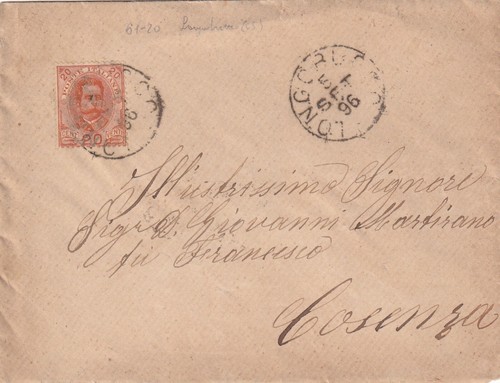 61-20
20 20
POSTE ITALIANE
LONGOBUCCO
96
Illustrissimo Signore
Sigr D. Giovanni Martirano
fu Francesco
Cosenza